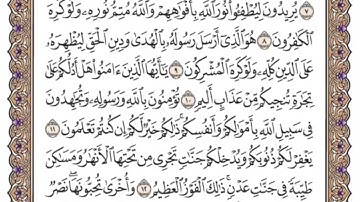 ٧ يُرِيدُونَ لِيُطْفِـُٔوا۟ نُورَ ٱللَّهِ بِأَفْوَٰهِهِمْ وَٱللَّهُ مُتِمُّ نُورِهِۦ وَلَوْ كَرِهَ
ٱلْكَٰفِرُونَ ٨ هُوَ ٱلَّذِىٓ أَرْسَلَ رَسُولَهُۥ بِٱلْهُدَىٰ وَدِينِ ٱلْحَقِّ لِيُظْهِرَهُۥ
عَلَى ٱلدِّينِ كُلِّهِۦ وَلَوْ كَرِهَ ٱلْمُشْرِكُونَ ٩ يَٰٓأَيُّهَا ٱلَّذِينَ ءَامَنُوا۟ هَلْ أَدُلُّكُمْ عَلَىٰ
تِجَٰرَةٍ تُنجِيكُم مِّنْ عَذَابٍ أَلِيمٍ ١٠ تُؤْمِنُونَ بِٱللَّهِ وَرَسُولِهِۦ وَتُجَٰهِدُونَ
فِى سَبِيلِ ٱللَّهِ بِأَمْوَٰلِكُمْ وَأَنفُسِكُمْ ۚ ذَٰلِكُمْ خَيْرٌ لَّكُمْ إِن كُنتُمْ تَعْلَمُونَ ١١
يَغْفِرْ لَكُمْ ذُنُوبَكُمْ وَيُدْخِلْكُمْ جَنَّٰتٍ تَجْرِى مِن تَحْتِهَا ٱلْأَنْهَٰرُ وَمَسَٰكِنَ
طَيِّبَةً فِى جَنَّٰتِ عَدْنٍ ۚ ذَٰلِكَ ٱلْفَوْزُ ٱلْعَظِيمُ ١٢ وَأُخْرَىٰ تُحِبُّونَهَا ۖ نَصْرٌ